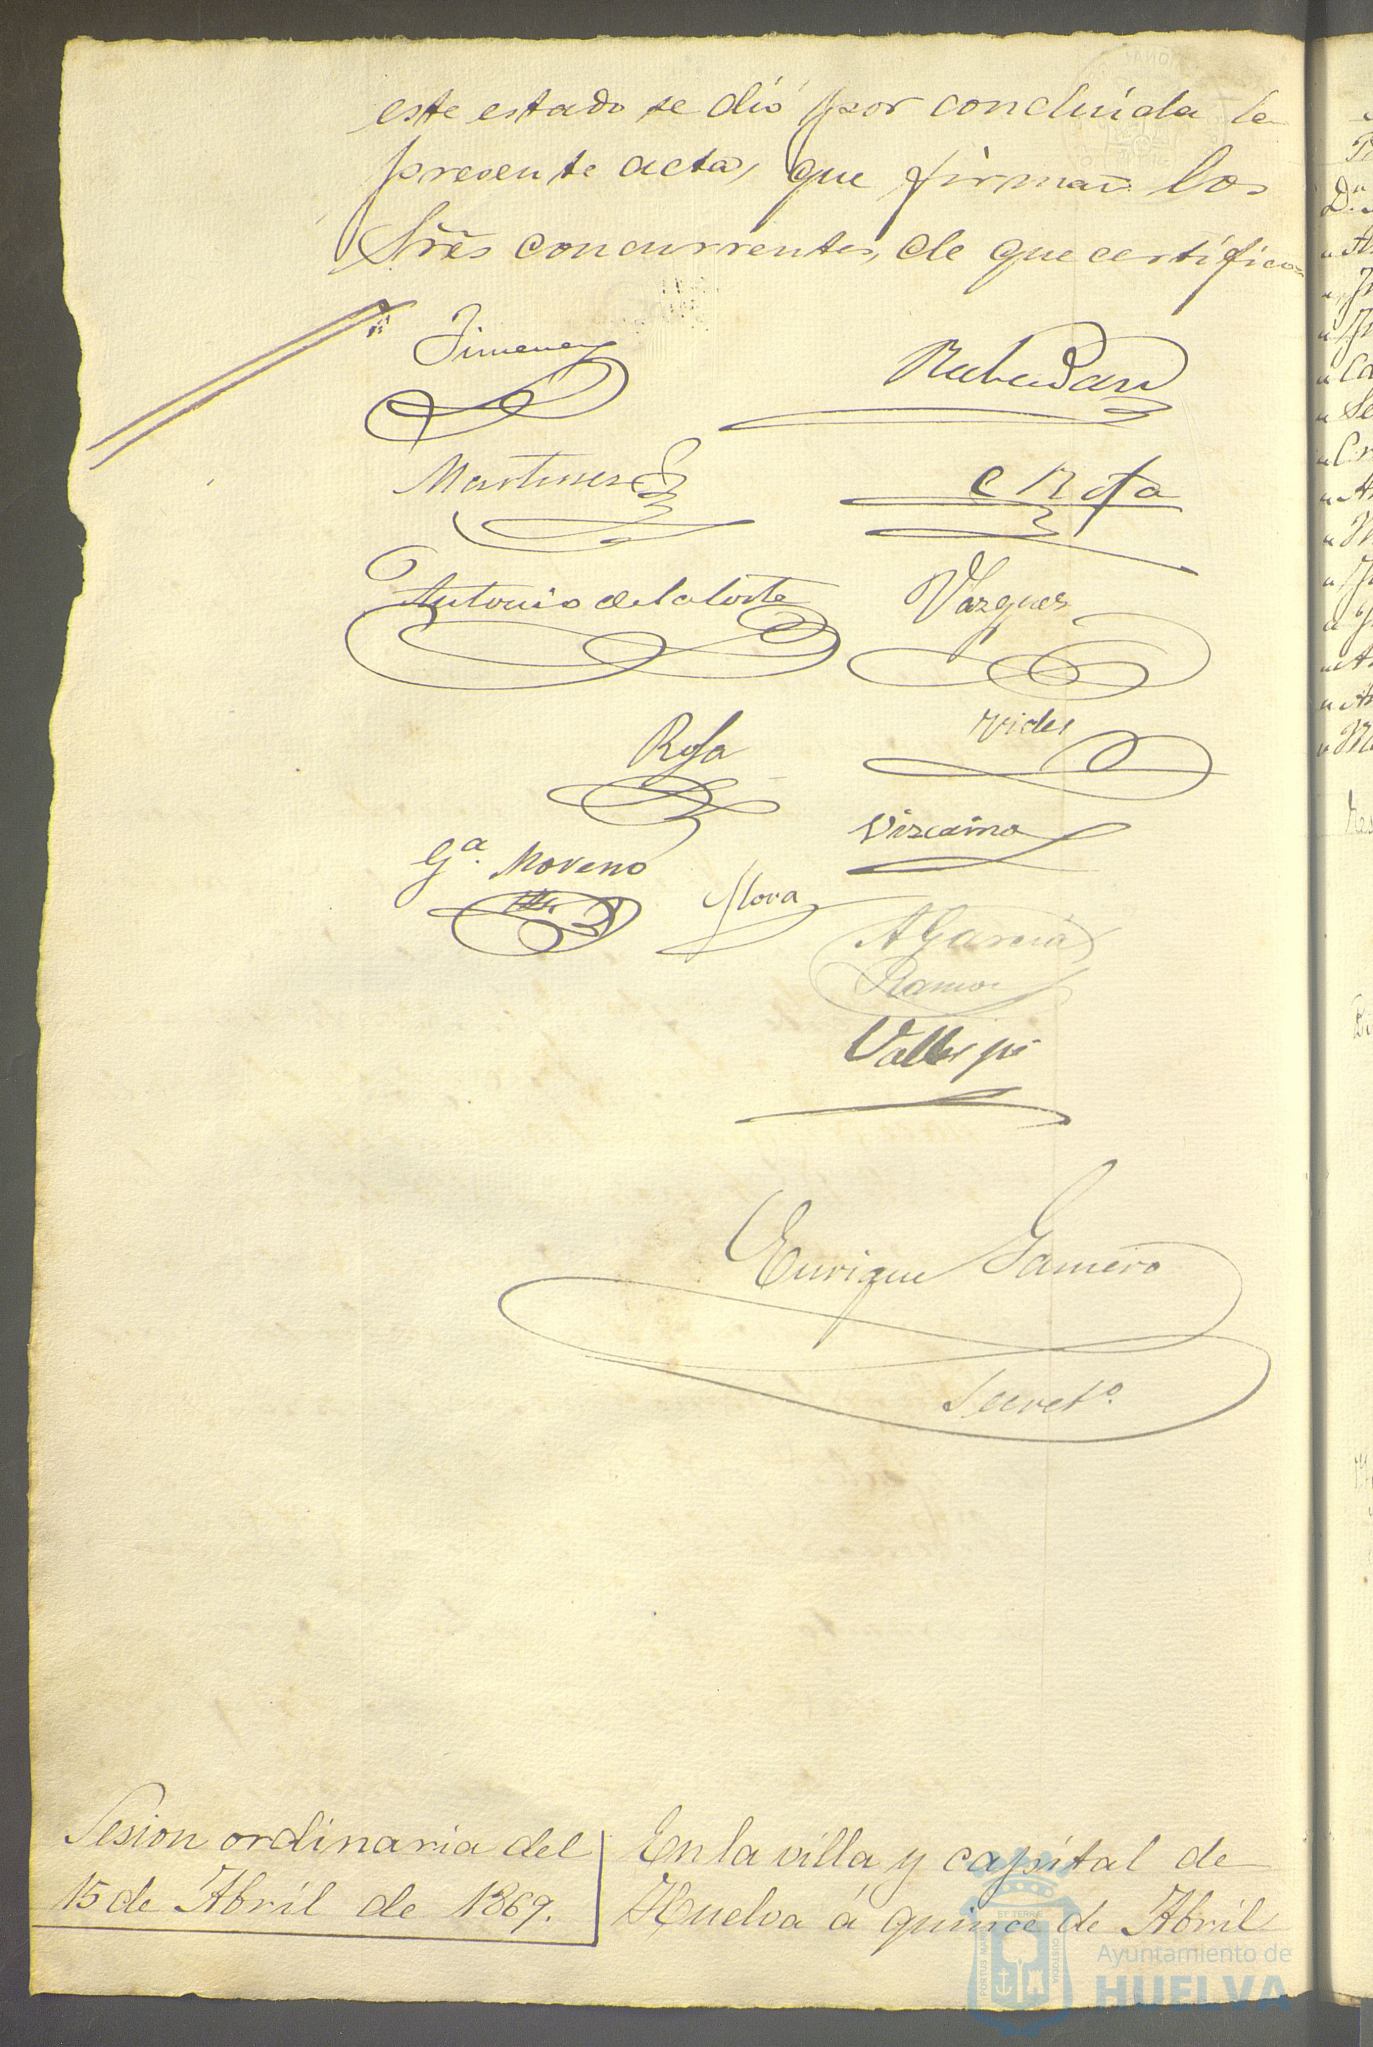 este estado se dió por concluida la
presente acta, que firman los
Sres concurrentes, de que certifico
Jimenez
Rabadan
Martinez
C Rofa
Antonio de la Corte
Vazquez
Vides
Rofa
Vizcaino
Ga. Moreno
Mora
A Garcia
Ramos
Enrique Gamero
Secreto.
Sesion ordinaria del
15 de Abril de 1869.
En la villa y capital de
Huelva á quince de Abril
Ayuntamiento de
HUELVA